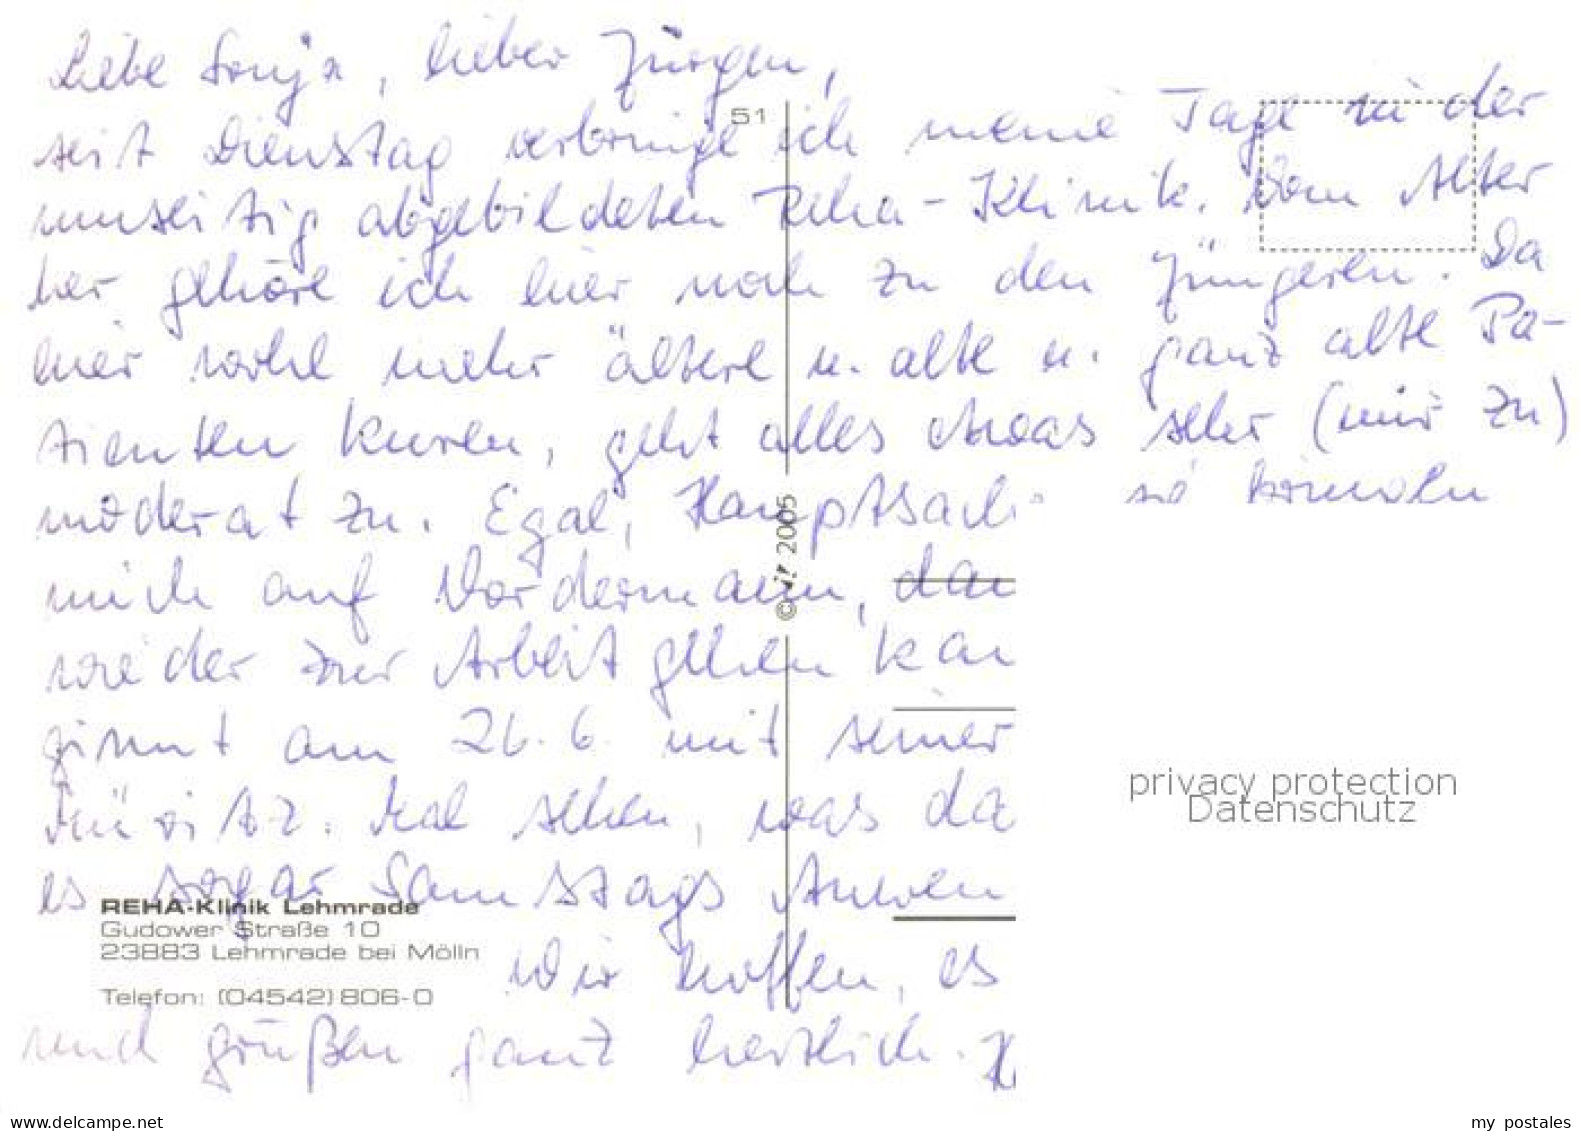 Liebe Sonja, lieber Jürgen,
51
seit Dienstag verbringe ich meine Tage in der
umseitig abgebildeten Reha-Klinik. Vom Alter
her gehöre ich hier noch zu den Jüngeren. Da
hier wohl mehr ältere u. alte u. ganz alte Pa-
tienten kuren, geht alles etwas sehr (mir zu)
moderat zu. Egal, Hauptsach
mich auf Vordermann, dan
wieder zur Arbeit gehen kan
ginnt am 26.6. mit seiner
Müritz. Mal sehen, was da
es sogar Samstags Anwen
© 2005
REHA-Klinik Lehmrade
Gudower Straße 10
23883 Lehmrade bei Mölln
Telefon: (04542) 806-0
Wir hoffen, es
und grüßen ganz herzlich.
privacy protection
Datenschutz
www.delcampe.net
my postales